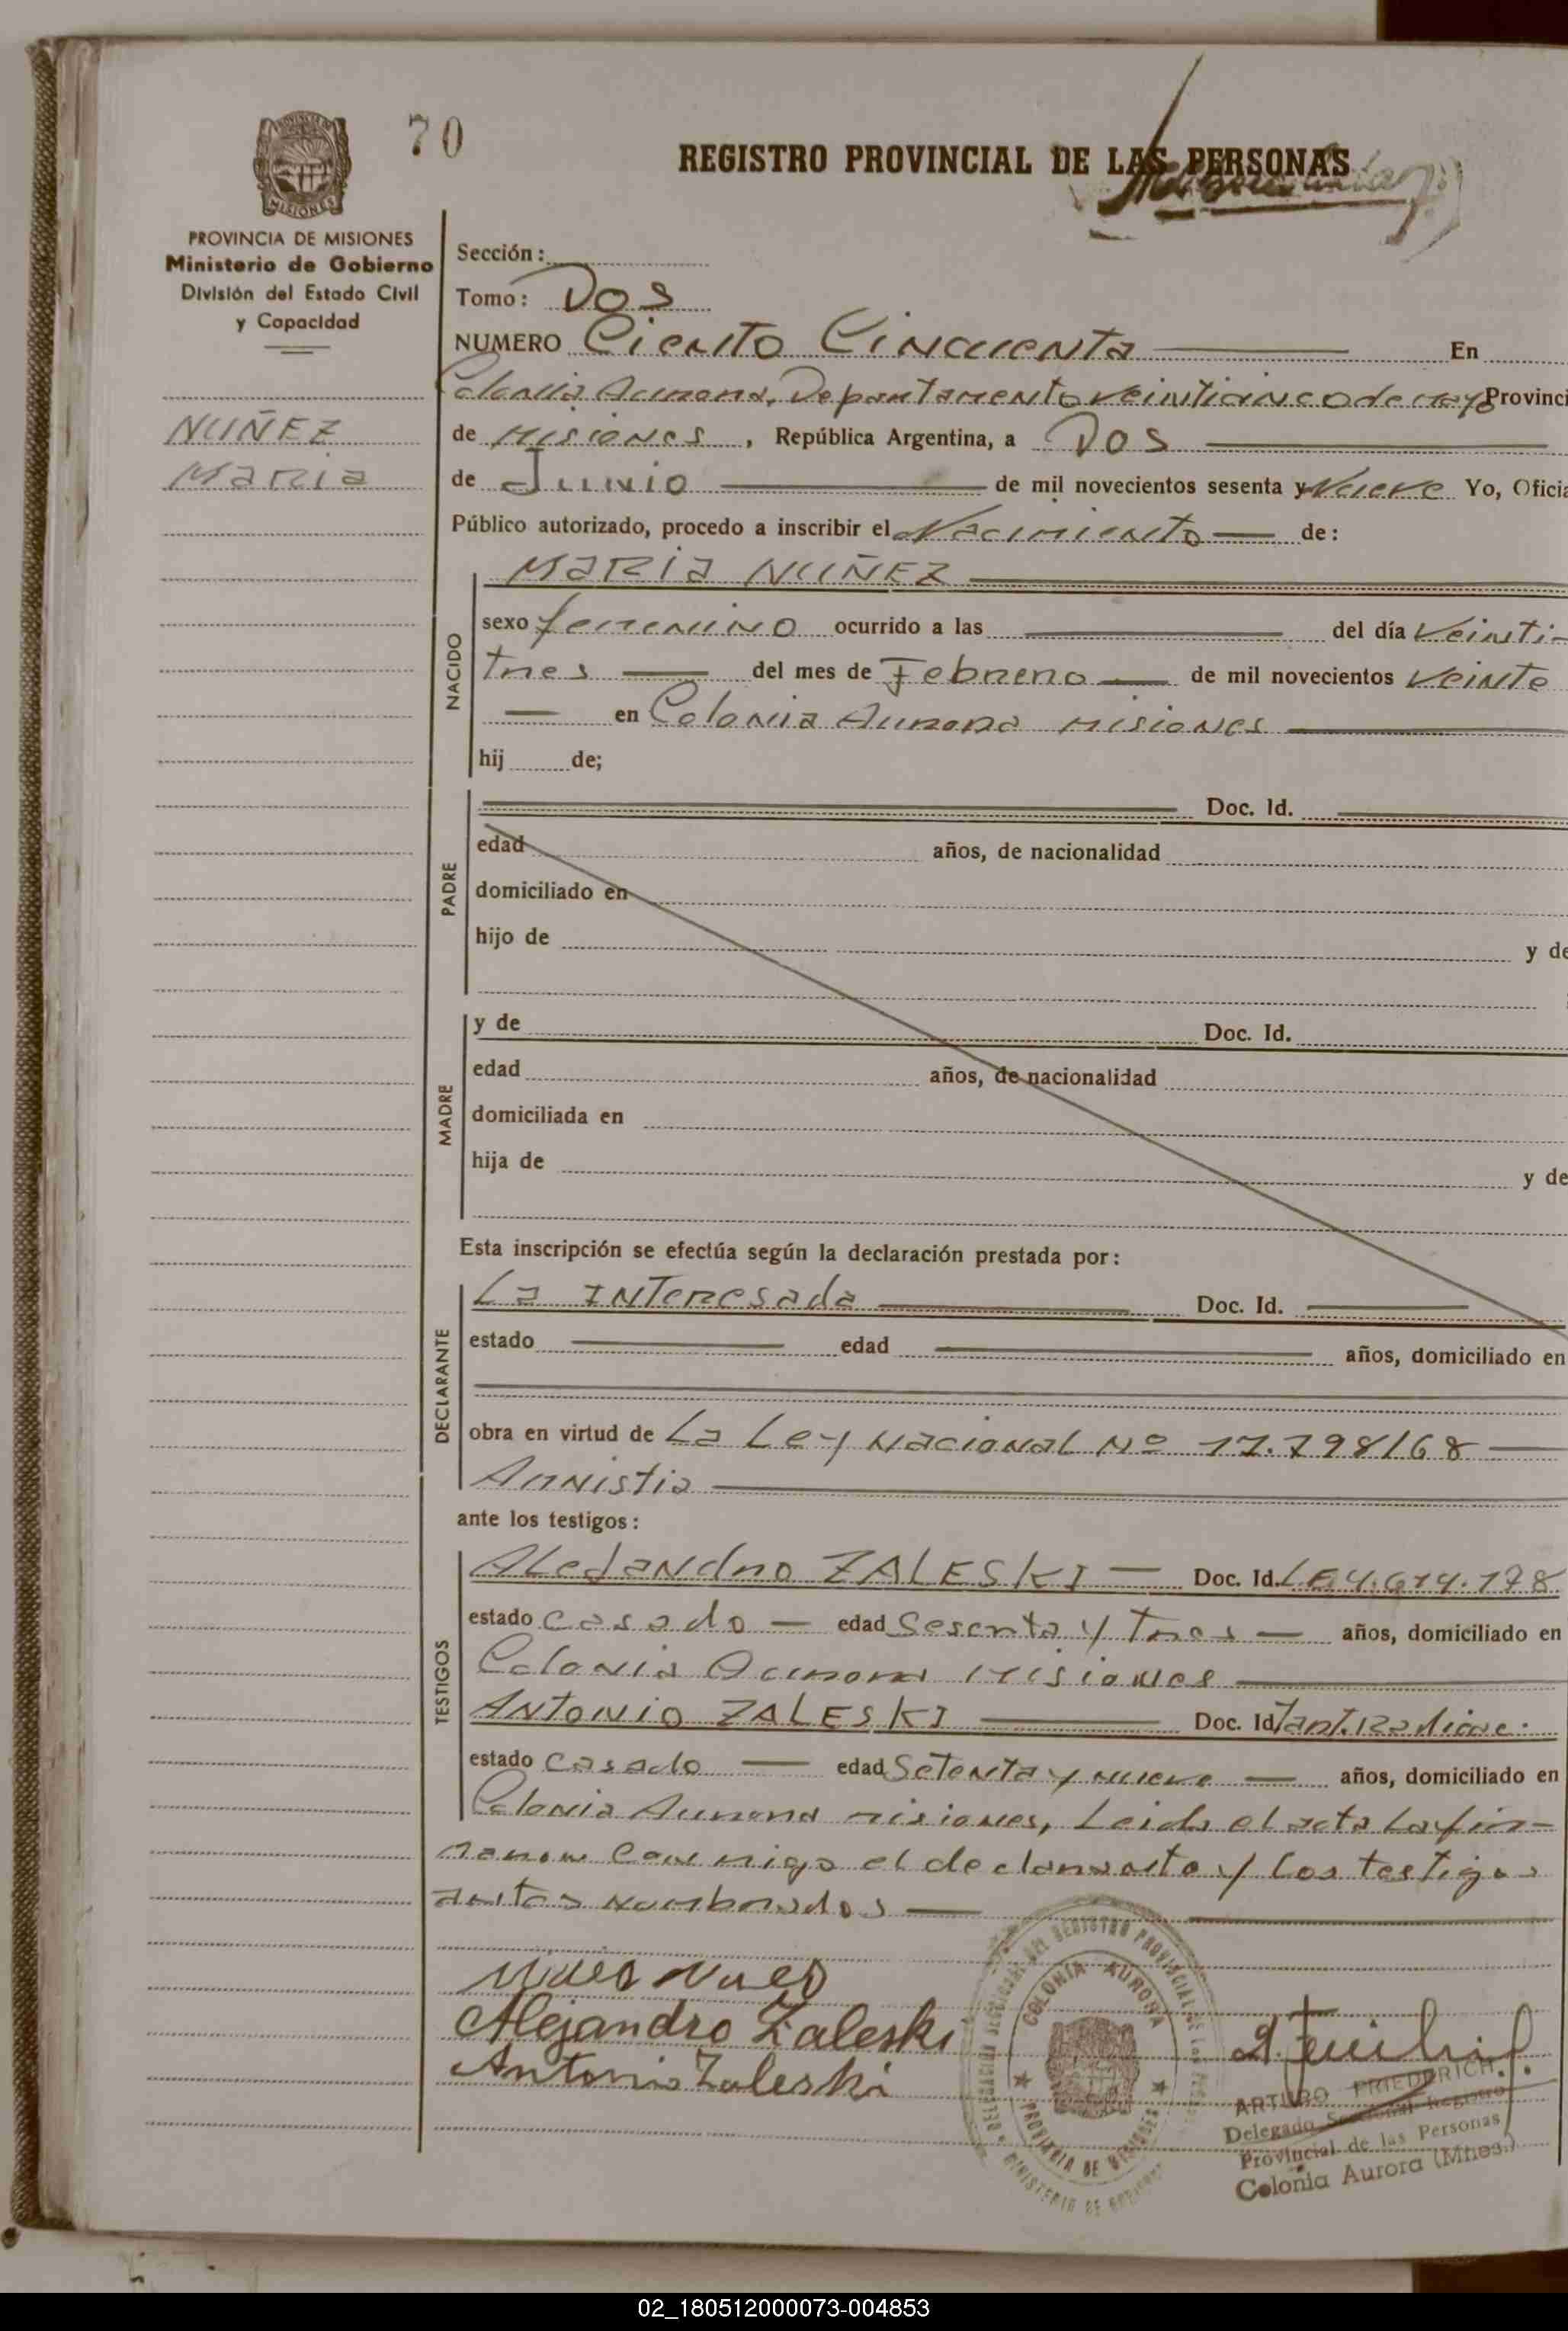 70
REGISTRO PROVINCIAL DE LAS PERSONAS
PROVINCIA DE MISIONES
Ministerio de Gobierno
División del Estado Civil
y Capacidad
NUÑEZ
Maria
Sección:
Tomo: Dos
NUMERO Ciento Cincuenta En
Colonia Aurora, Departamento veinticinco de mayo Provinci
de Misiones, República Argentina, a Dos
de Junio de mil novecientos sesenta y Nueve Yo, Oficia
Público autorizado, procedo a inscribir el Nacimiento de:
Maria NUÑEZ
NACIDO
sexo femenino ocurrido a las del día Veinti-
tres del mes de Febrero de mil novecientos veinte
en Colonia Aurora Misiones
hij de;
PADRE
Doc. Id.
edad años, de nacionalidad
domiciliado en
hijo de y de
MADRE
y de Doc. Id.
edad años, de nacionalidad
domiciliada en
hija de y de
Esta inscripción se efectúa según la declaración prestada por:
DECLARANTE
La Interesada Doc. Id.
estado edad años, domiciliado en
obra en virtud de La Ley Nacional Nº 17.798/68
Amnistia
ante los testigos:
TESTIGOS
Alejandro ZALESKI Doc. Id. LE 4.614.178
estado casado edad Sesenta y Tres años, domiciliado en
Colonia Aurora Misiones
Antonio ZALESKI Doc. Id
estado casado edad Setenta y nueve años, domiciliado en
Colonia Aurora misiones, Leida el acta la fir-
maron conmigo el declarante y los testigos
antes nombrados
Alejandro Zaleski
Antonio Zaleski
COLONIA AURORA
PROVINCIA DE MISIONES
MINISTERIO DE GOBIERNO
ARTURO FRIEDERICH
Delegado Seccional Registro
Provincial de las Personas
Colonia Aurora (Mnes.)
02_180512000073-004853